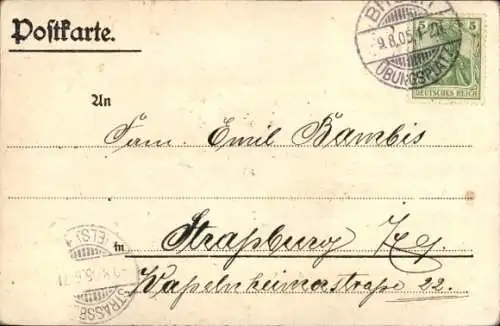 Postkarte.
BIT
9.8.05
ÜBUNGSPLATZ
5 5
DEUTSCHES REICH
An
Fam. Emil Bambis
in Straßburg
Kapelnheimerstraße 22.
(ELS)
STRASSB